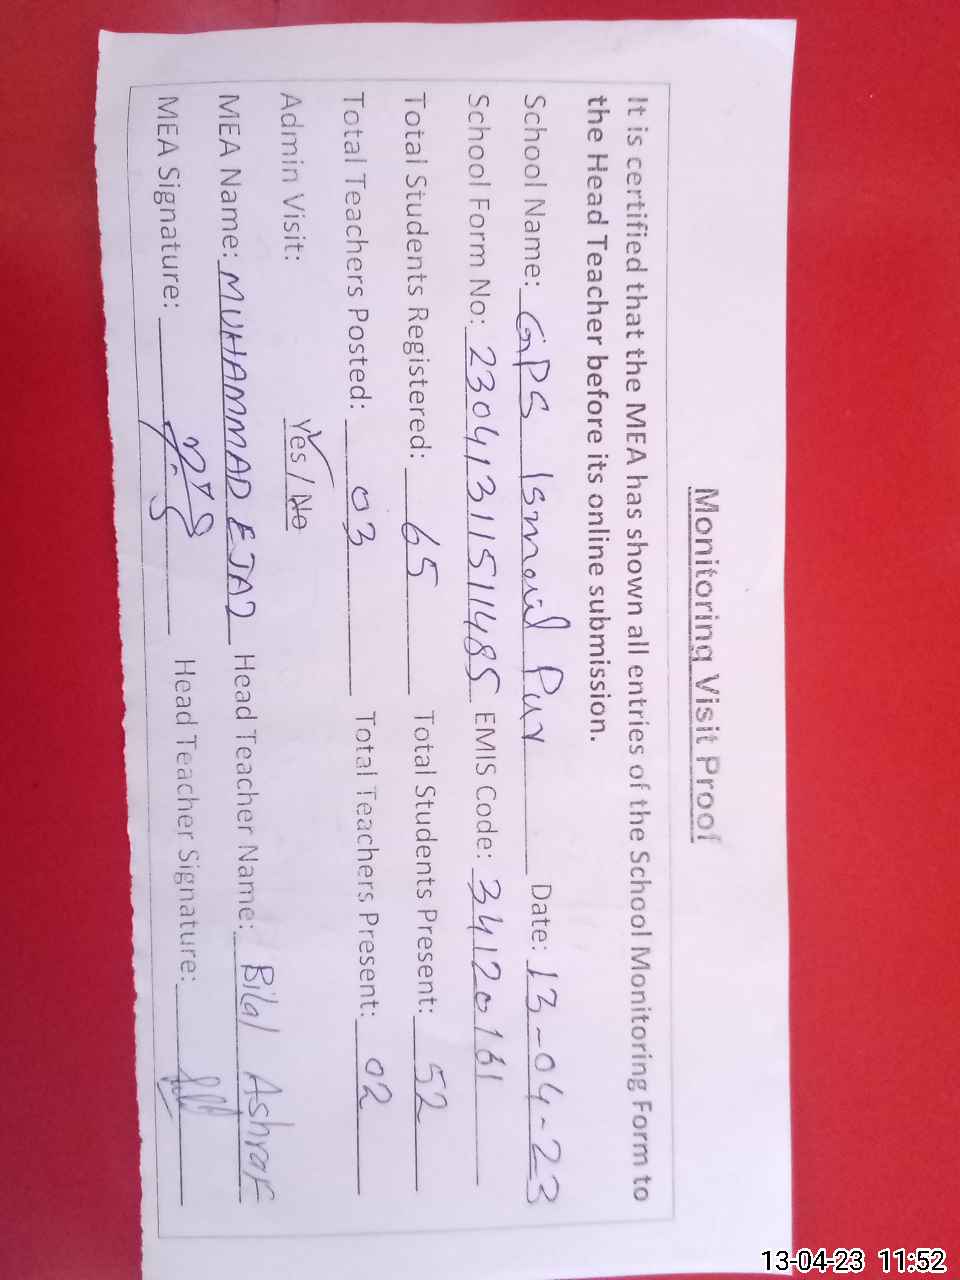 Monitoring Visit Proof
It is certified that the MEA has shown all entries of the School Monitoring Form to
the Head Teacher before its online submission.
School Name: GPS Ismail Pur Date: 13-04-23
School Form No: 23041311511485 EMIS Code: 34120161
Total Students Registered: 65 Total Students Present: 52
Total Teachers Posted: 03 Total Teachers Present: 02
Admin Visit: Yes / No
MEA Name: MUHAMMAD EJAZ Head Teacher Name: Bilal Ashraf
MEA Signature: Head Teacher Signature:
13-04-23 11:52